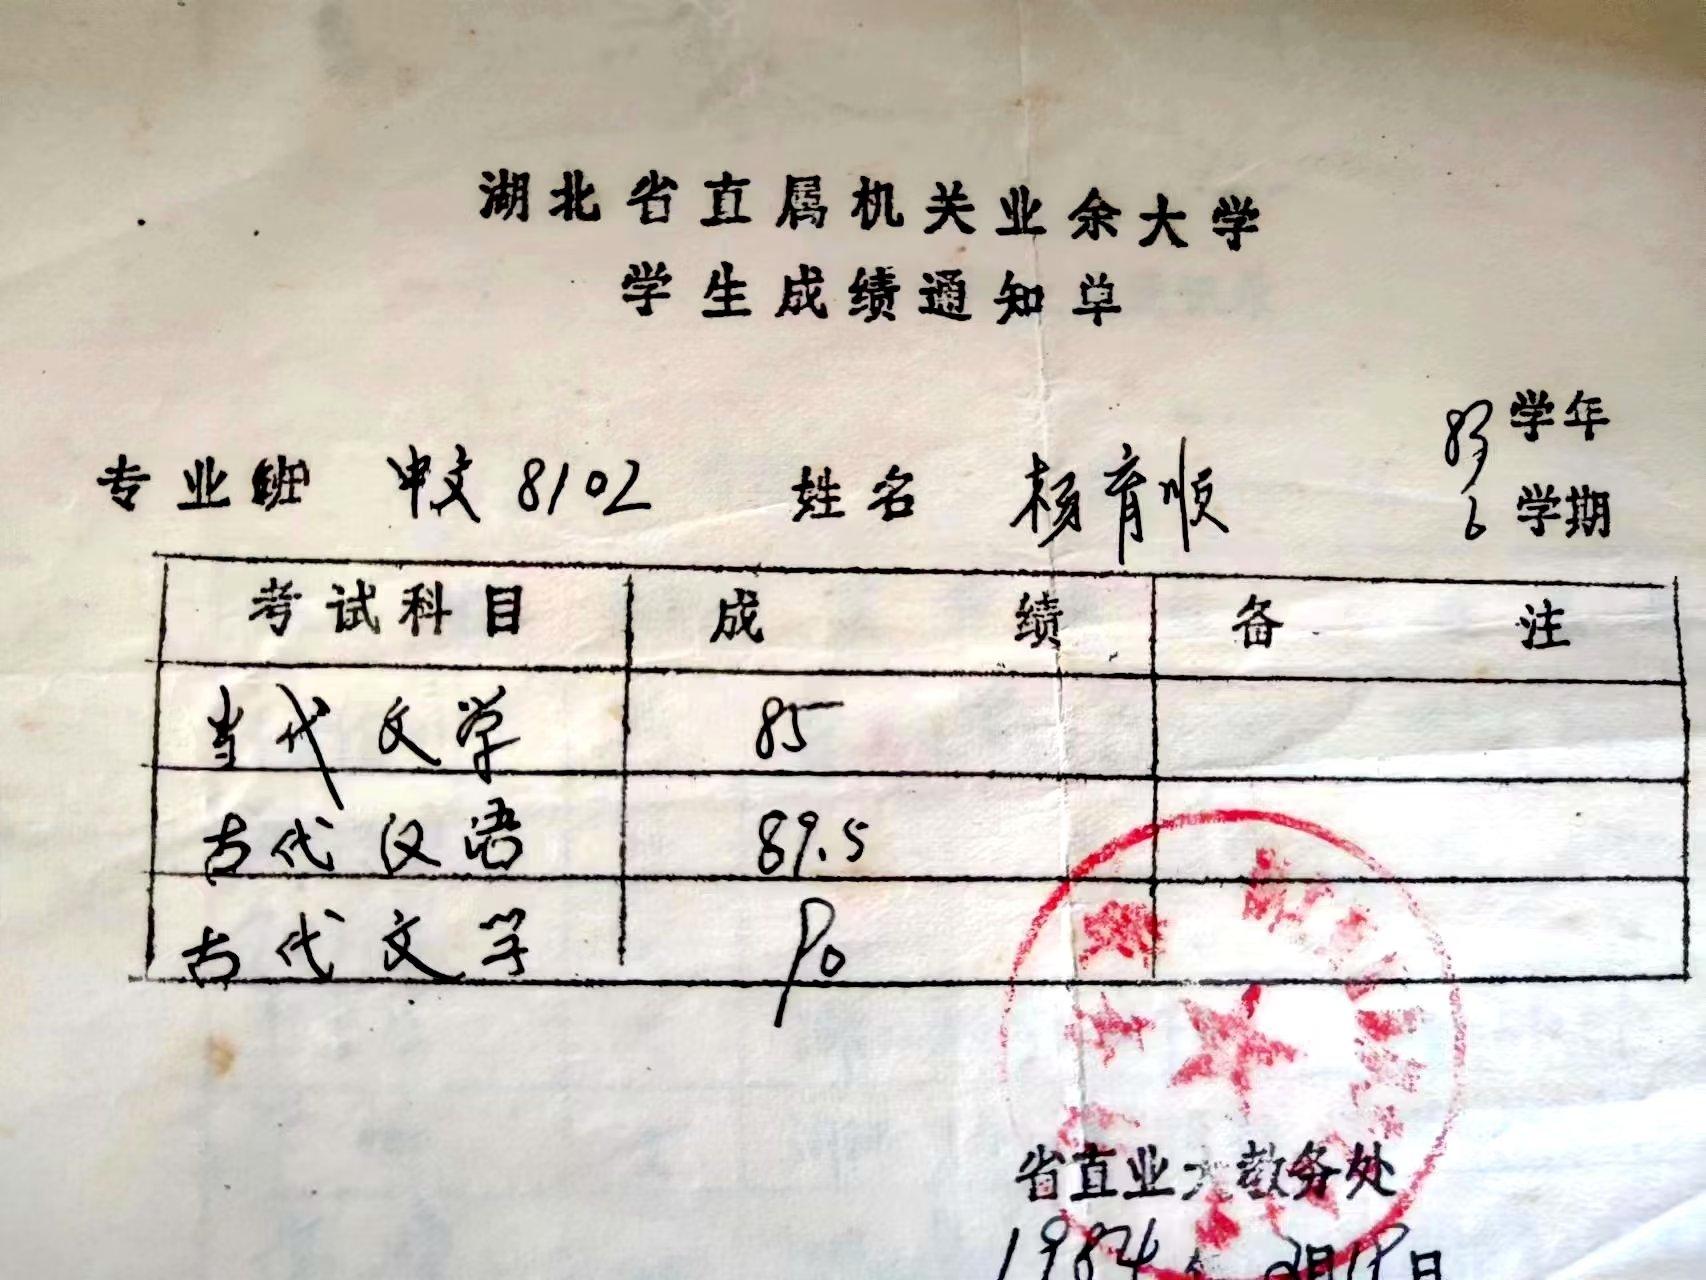 湖北省直属机关业余大学
学生成绩通知单
83学年
专业班 中文8102 姓名 杨育顺 6学期
考试科目 成绩 备注
当代文学 85
古代汉语 89.5
古代文学 90
省直业大教务处
1984年2月19日